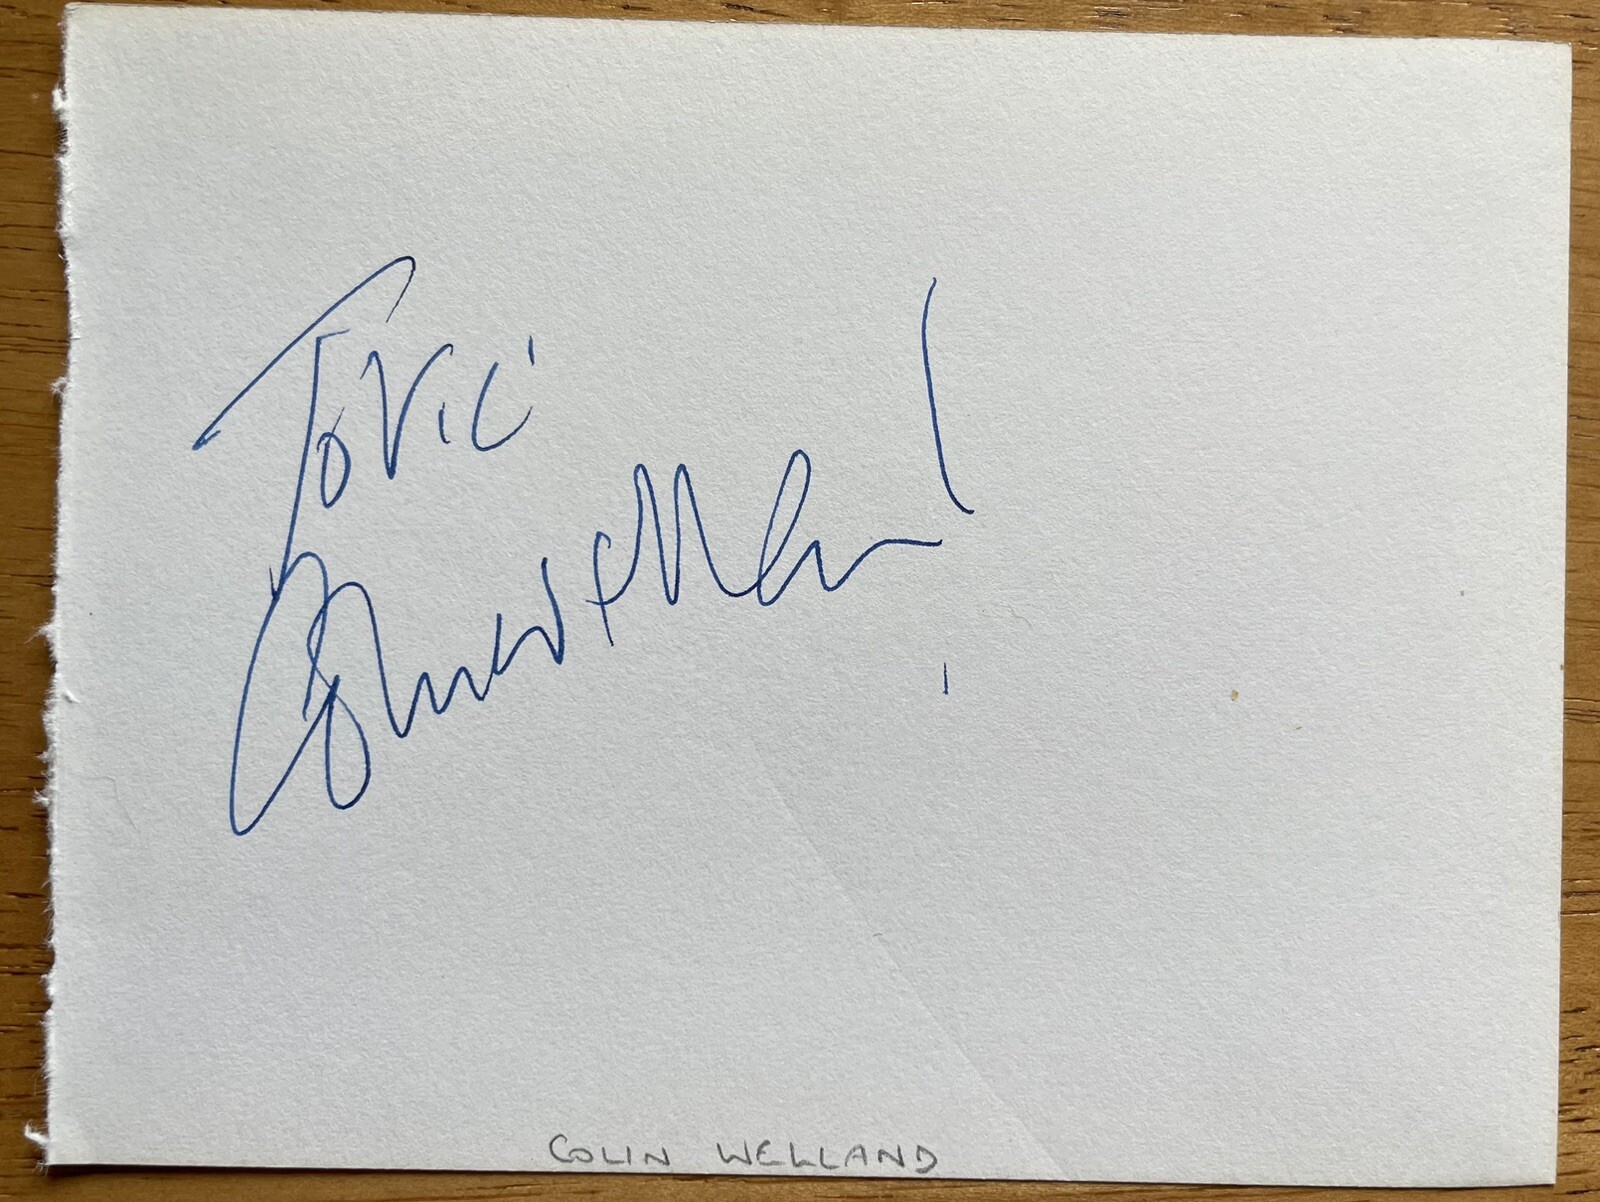 To Vic
Colin Welland!
COLIN WELLAND